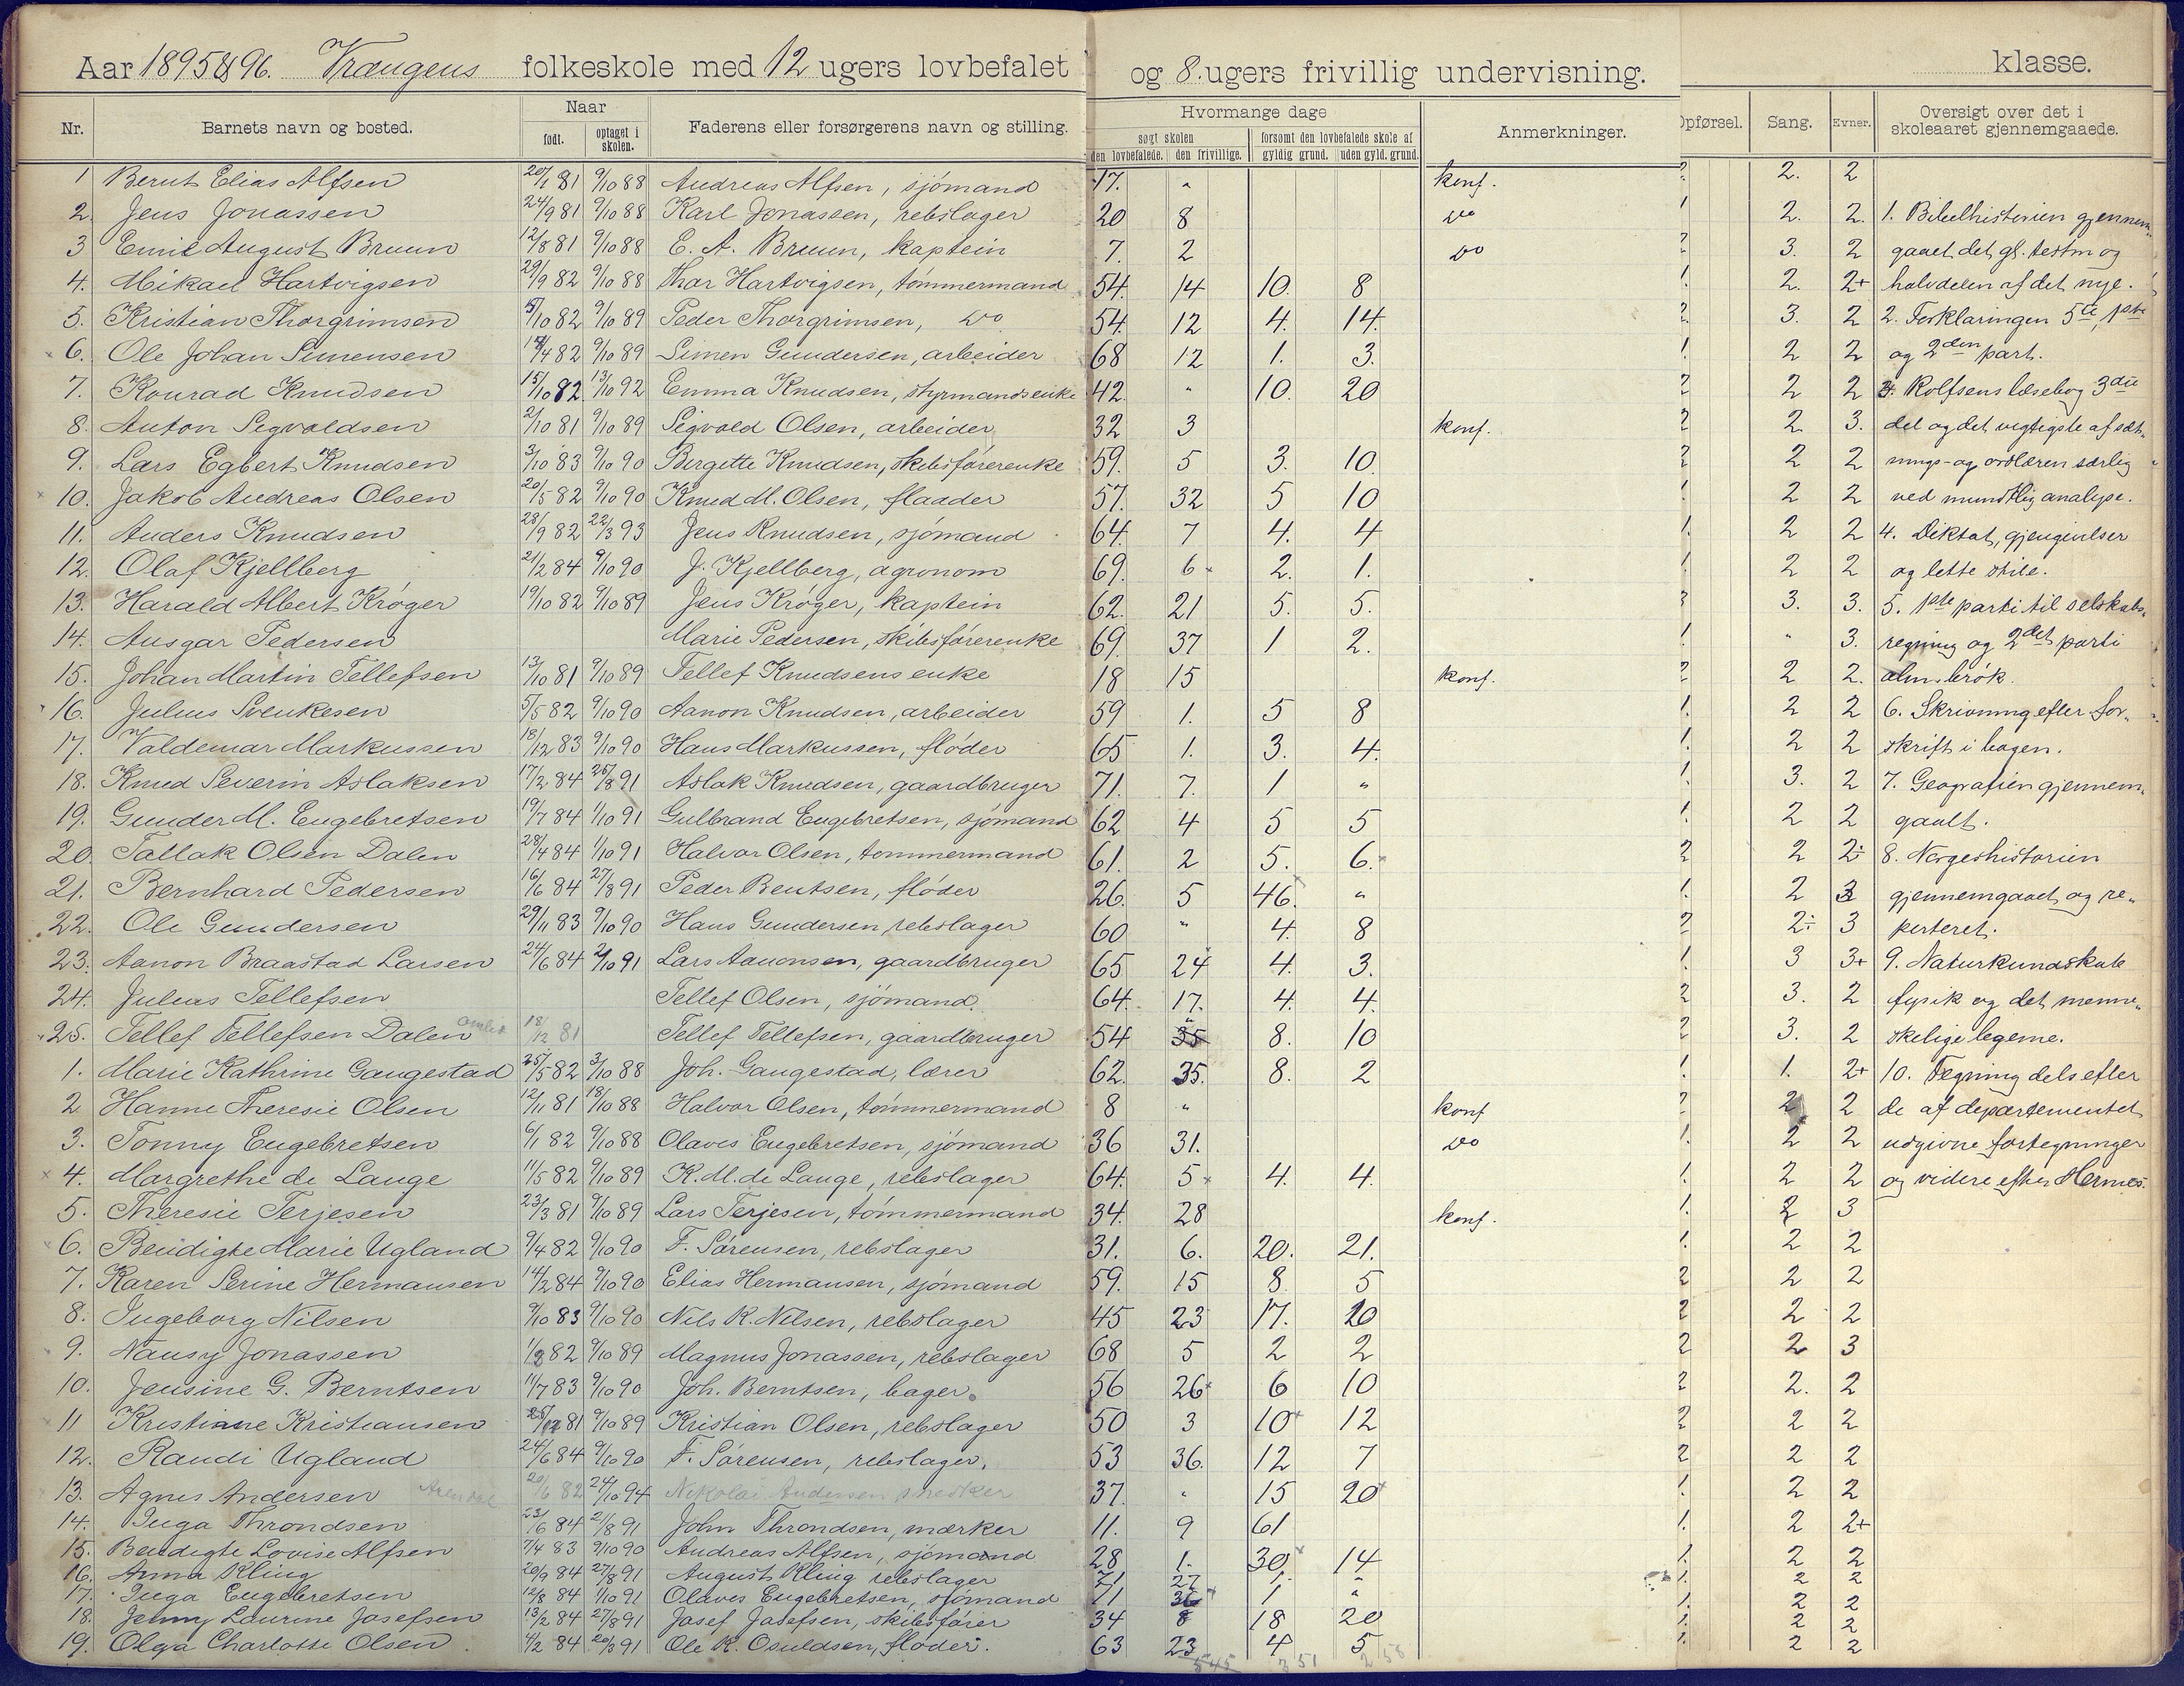 Aar 1895 & 96. Vrængens folkeskole med 12 ugers lovbefalet og 8. ugers frivillig undervisning. klasse.
Nr. Barnets navn og bosted. Naar født. optaget i skolen. Faderens eller forsørgerens navn og stilling. Hvormange dage søgt skolen den lovbefalede. den frivillige. forsømt den lovbefalede skole af gyldig grund. uden gyld. grund. Anmerkninger. Opførsel. Sang. Evner. Oversigt over det i skoleaaret gjennemgaaede.
1 Bernt Elias Alfsen 20/1 81 9/10 88 Andreas Alfsen, sjömand 17. " konf. 2 2. 2
2. Jens Jonassen 24/9 81 9/10 88 Karl Jonassen, rebslager 20 8 do 1 2. 2. 1. Bibelhistorien gjennem-
3 Emil August Bruun 12/8 81 9/10 88 E. A. Bruun, kaptein 7. 2 do 2 3. 2 gaaet det gl. testm og
4. Mikael Hartvigsen 29/9 82 9/10 88 Thor Hartvigsen, tömmermand 54. 14 10. 8 1. 2. 2+ halvdelen af det nye.
5. Kristian Thorgrimsen 5/10 82 9/10 89 Peder Thorgrimsen, do 54. 12 4. 14. 2. 3. 2 2. Forklaringen 5te, 1ste
6. Ole Johan Simensen 14/4 82 9/10 89 Simen Gundersen, arbeider 68 12 1. 3. 1. 2 2 og 2den part.
7. Konrad Knudsen 15/10 82 13/10 92 Emma Knudsen, styrmandsenke 42. " 10. 20 2 2 2 3. Rolfsens læsebog 3die
8. Anton Sigvaldsen 2/10 81 9/10 89 Sigvald Olsen, arbeider 32 3 konf. 2 2. 3. del og det vigtigste af sæt-
9. Lars Egbert Knudsen 3/10 83 9/10 90 Birgitte Knudsen, skibsförerenke 59. 5 3. 10. 2 2 2 nings- og ordlæren særlig
10. Jakob Andreas Olsen 20/5 82 9/10 90 Knud M. Olsen, flaader 57. 32 5 10 1. 2 2 ved mundtlig analyse.
11. Anders Knudsen 28/9 82 22/3 93 Jens Knudsen, sjömand 64. 7 4. 4 1. 2 2 4. Diktat, gjengivelser
12. Olaf Kjellberg 21/2 84 9/10 90 J. Kjellberg, agronom 69. 6 2. 1. 1. 2 2 og lette stile.
13. Harald Albert Kröger 19/10 82 9/10 89 Jens Kröger, kaptein 62. 21 5. 5. 3 3. 3. 5. 1ste parti til selskabs-
14. Ansgar Pedersen Marie Pedersen, skibsförerenke 69. 37 1 2. 1. " 3. regning og 2det parti
15. Johan Martin Tellefsen 13/10 81 9/10 89 Tellef Knudsens enke 18 15 konf. 2 2 2. alm. brök.
16. Julius Svenkesen 5/5 82 9/10 90 Aanon Knudsen, arbeider 59 1. 5 8 1. 2 2 6. Skrivning efter for-
17. Valdemar Markussen 18/12 83 9/10 90 Hans Markussen, flöder 65 1. 3. 4. 1. 2 2 skrift i bogen.
18. Knud Severin Aslaksen 17/2 84 26/8 91 Aslak Knudsen, gaardbruger 71. 7. 1 " 1. 3. 2 7. Geografien gjennem-
19. Gunder M. Engebretsen 19/7 84 1/10 91 Gulbrand Engebretsen, sjömand 62 4 5 5 1. 2 2 gaaet.
20. Tallak Olsen Dalen 28/4 84 1/10 91 Halvor Olsen, tömmermand 61. 2 5. 6. 2 2 2÷ 8. Norgeshistorien
21. Bernhard Pedersen 16/6 84 27/8 91 Peder Bentsen, flöder 26. 5 46. " 1. 2 3 gjennemgaaet og re-
22. Ole Gundersen 29/11 83 9/10 90 Hans Gundersen, rebslager 60 " 4. 8 2 2÷ 3 peteret.
23. Aanon Braastad Larsen 24/6 84 2/10 91 Lars Aanonsen, gaardbruger 65 24 4. 3. 1. 3 3+ 9. Naturkundskab
24. Julius Tellefsen Tellef Olsen, sjömand. 64. 17. 4. 4. 2 3. 2 fysik og det menne-
25. Tellef Tellefsen Dalen 18/12 81 Tellef Tellefsen, gaardbruger 54 35 8. 10 2 3. 2 skelige legeme.
1. Marie Kathrine Gangestad 25/5 82 3/10 88 Joh. Gangestad, lærer 62. 35. 8. 2 1. 1. 2+ 10. Tegning dels efter
2 Hanne Theresie Olsen 12/11 81 18/10 88 Halvor Olsen, tömmermand 8 " konf 2 2 2 de af departementet
3. Tonny Engebretsen 6/1 82 9/10 88 Olaves Engebretsen, sjömand 36 31. do 1. 2 2 udgivne fortegninger
4. Margrethe de Lange 11/5 82 9/10 89 K. M. de Lange, rebslager 64. 5 4. 4. 1. 2 2 og videre efter Hermes.
5. Theresie Terjesen 23/3 81 9/10 89 Lars Terjesen, tömmermand 34. 28 konf. 1. 2 3
6. Bendigte Marie Ugland 9/4 82 9/10 90 F. Sörensen, rebslager 31. 6. 20. 21. 1. 2 2
7. Karen Serine Hermansen 14/2 84 9/10 90 Elias Hermansen, sjömand 59. 15 8 5 2 2 2
8. Ingeborg Nilsen 9/10 83 9/10 90 Nils K. Nilsen, rebslager 45 23 17. 20 2 2 2
9. Nansy Jonassen 1/8 82 9/10 89 Magnus Jonassen, rebslager 68 5 2 2 2 2 3
10. Jensine G. Berntsen 11/7 83 9/10 90 Joh. Berntsen, bager. 56 26 6 10 2 2. 2
11 Kristiane Kristiansen 25/12 81 9/10 89 Kristian Olsen, rebslager 50 3 10 12 2 2 2
12. Randi Ugland 24/6 84 9/10 90 F. Sörensen, rebslager. 53 36. 12 7 2 2 2
13. Agnes Andersen Arendal 20/6 82 24/10 94 Nikolai Andersen snedker 37. " 15 20 1. 2 2
14. Inga Throndsen 23/6 84 2/8 91 John Throndsen, mærker 11. 9 61 1. 2 2+
15. Bendigte Lovise Alfsen 7/4 83 9/10 90 Andreas Alfsen, sjömand 28 1. 30 14 1. 2 2
16. Anna Kling 20/9 84 27/8 91 August Kling rebslager 71 27 1. " 1. 2 2
17. Inga Engebretsen 12/8 84 1/10 91 Olaves Engebretsen, sjömand 71 36 1 " 1. 2 2
18. Jenny Laurine Josefsen 13/2 84 27/8 91 Josef Josefsen, skibsförer 34 8 18 20 1. 2 2
19. Olga Charlotte Olsen 4/2 84 20/3 91 Ole K. Osuldsen, flöder. 63 23 4 5 1. 2 2
545 351 258